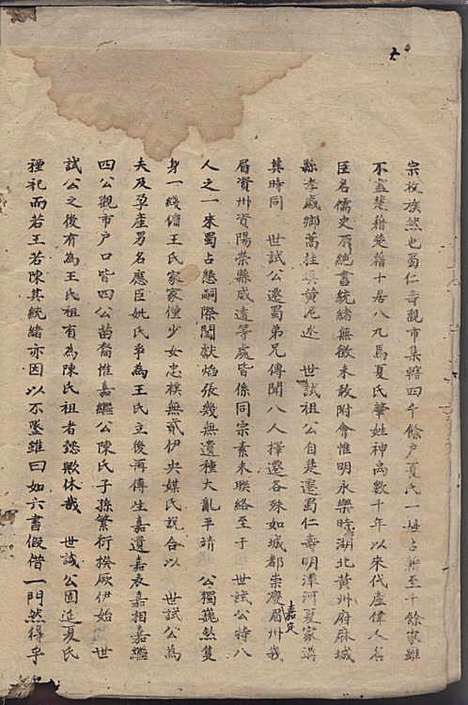 宗枝族然也蜀仁壽觀市集轄四千餘戶夏氏一姓占斯至千餘家雖
不盡楚籍楚籍十居八九焉夏氏華姓神禹數千年以來代產偉人名
臣名儒史冊總書統緒無徵未敢附會惟明永樂時湖北黃州府麻城
縣孝感鄉萬柱 黃 述 世試祖公自楚遷蜀仁壽明洋河夏家溝
其時同 世試公遷蜀弟兄傳聞八人擇遷各殊如城都崇慶眉州嘉定
眉資州資陽榮縣威遠等處皆係同宗素未聯絡至于 世試公特八
人之一來蜀占懸嗣際闖獻焰張幾無遺種大亂平靖 公獨巍然隻
身一綫僧王氏家家僅少女忠樸無貳伊央媒氏說合以 世試公為
夫及孕產男名應臣姚氏爭為王氏立後再傳生嘉遺嘉表嘉相嘉繼
四公觀市戶口皆四公苗裔惟嘉繼公陳氏子孫繁衍揆厥伊始 世
試公之後有為王氏祖有為陳氏祖者懿歟休哉 世試公園延夏氏
禋祀而若王若陳其統緒亦因以不墜雖曰如六書假借一門然得乎